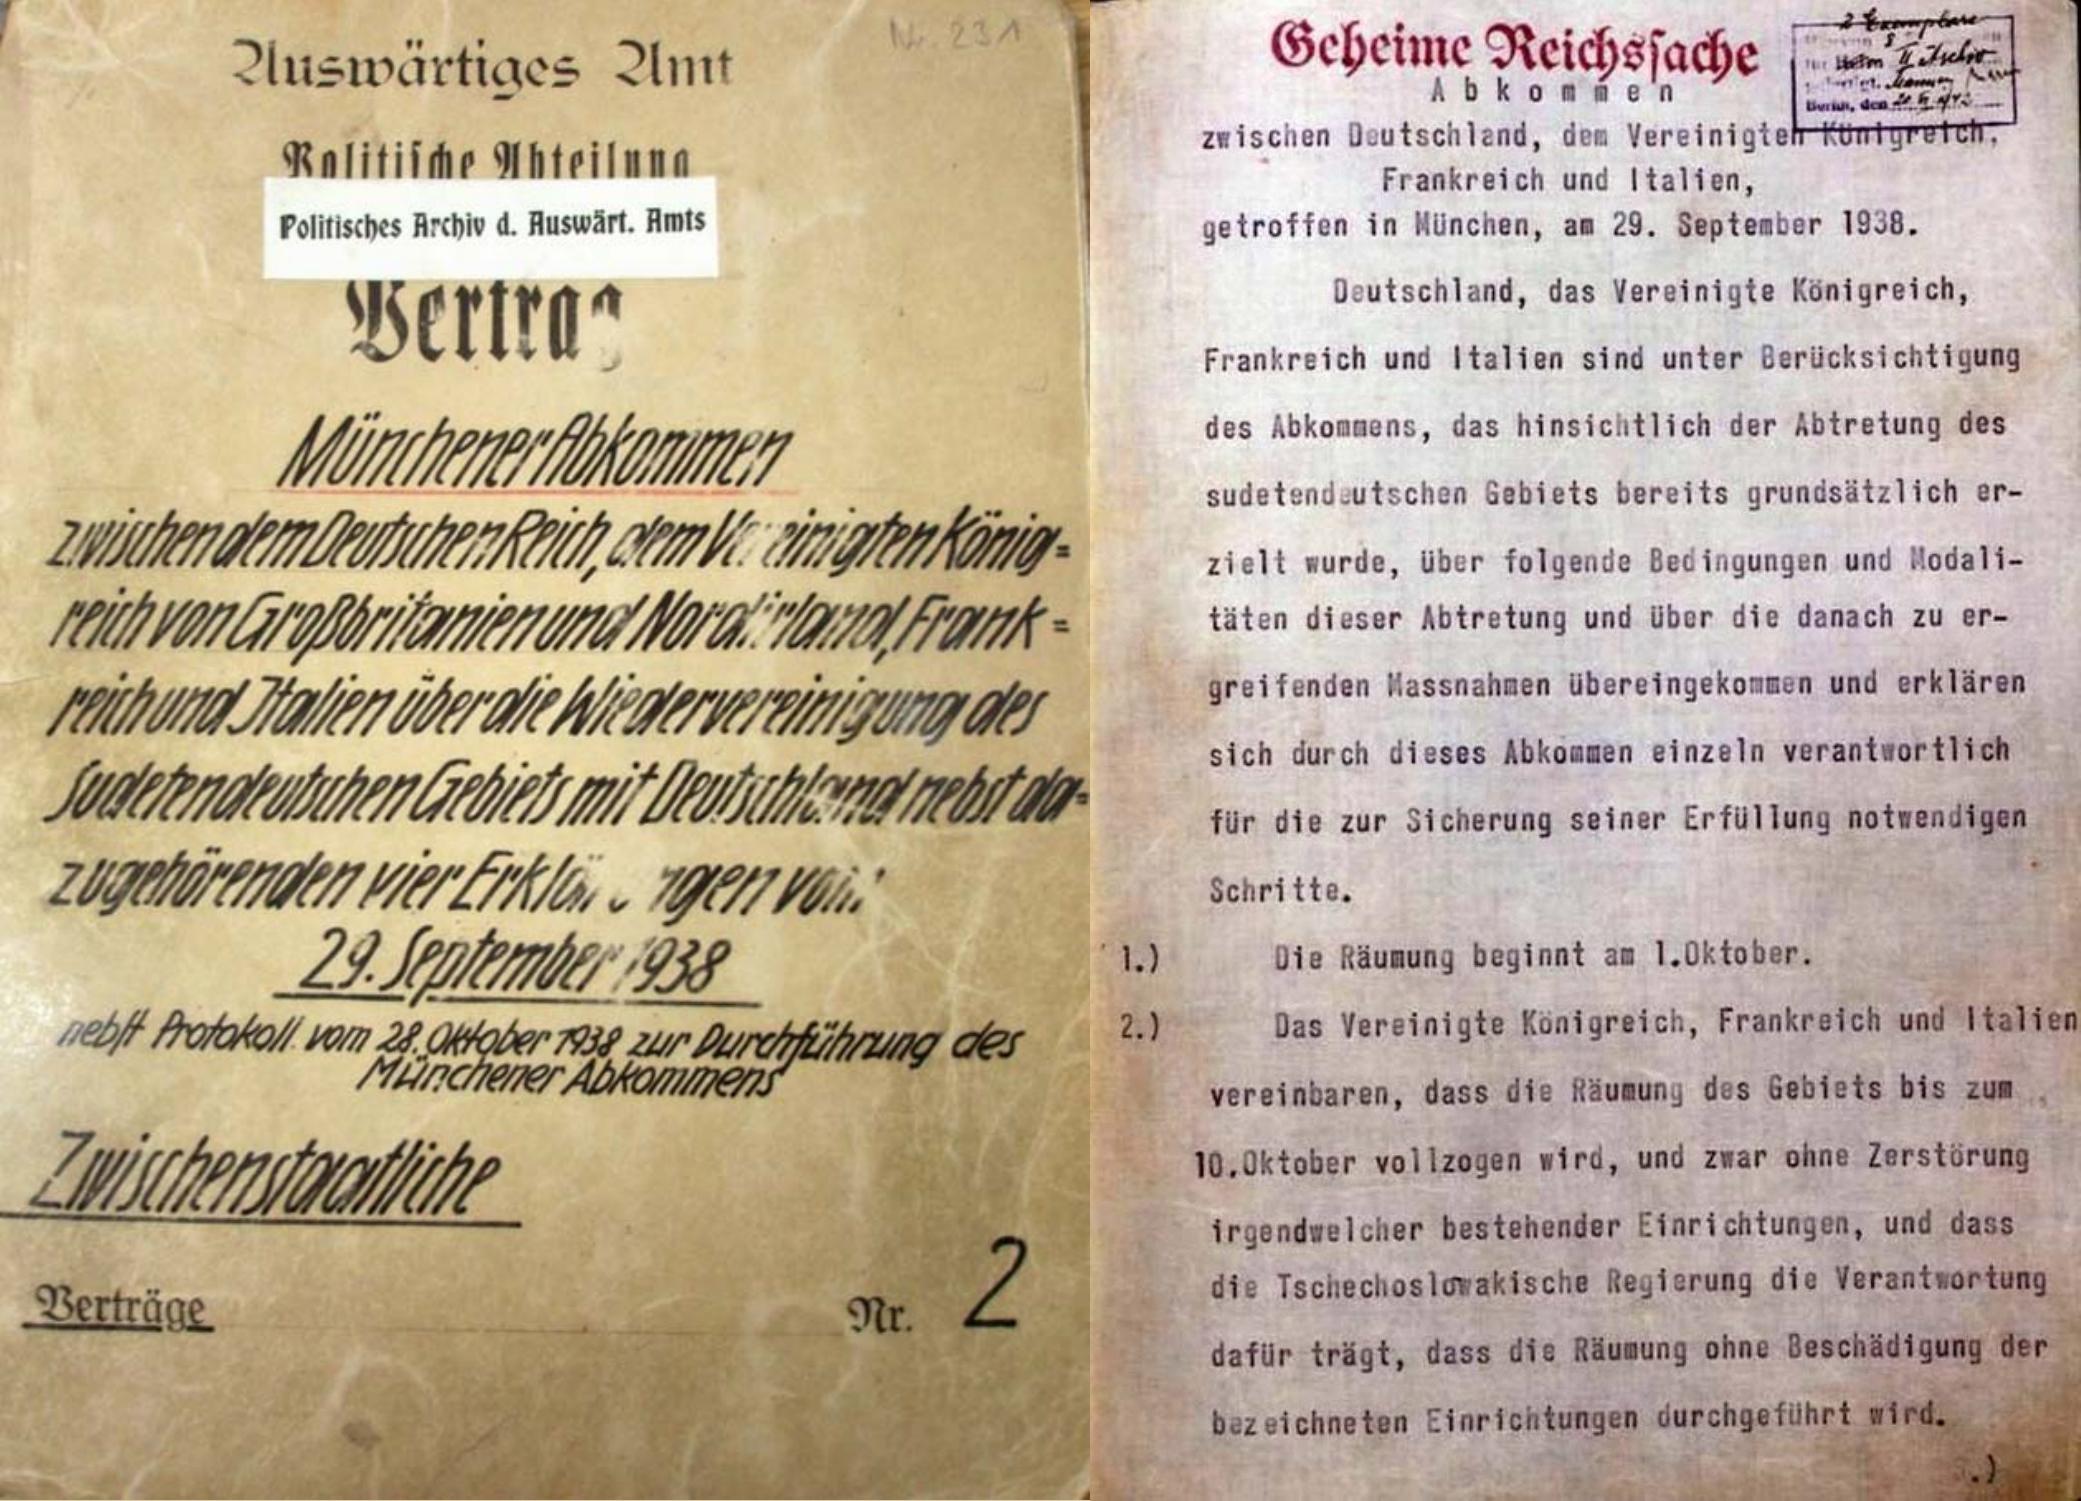 Nr. 231
Auswärtiges Amt
Politische Abteilung
Politisches Archiv d. Auswärt. Amts
Vertrag
Münchener Abkommen
zwischen dem Deutschen Reich, dem Vereinigten König=
reich von Großbritanien und Nordirland, Frank=
reich und Italien über die Wiedervereinigung des
Sudetendeutschen Gebiets mit Deutschland nebst da=
zugehörenden vier Erklärungen vom
29. September 1938
nebst Protokoll vom 28. Oktober 1938 zur Durchführung des
Münchener Abkommens
Zwischenstaatliche
Verträge Nr. 2
Geheime Reichssache
2 Exemplare
Berlin, den
Abkommen
zwischen Deutschland, dem Vereinigten Königreich,
Frankreich und Italien,
getroffen in München, am 29. September 1938.
Deutschland, das Vereinigte Königreich,
Frankreich und Italien sind unter Berücksichtigung
des Abkommens, das hinsichtlich der Abtretung des
sudetendeutschen Gebiets bereits grundsätzlich er-
zielt wurde, über folgende Bedingungen und Modali-
täten dieser Abtretung und über die danach zu er-
greifenden Massnahmen übereingekommen und erklären
sich durch dieses Abkommen einzeln verantwortlich
für die zur Sicherung seiner Erfüllung notwendigen
Schritte.
1.) Die Räumung beginnt am 1.Oktober.
2.) Das Vereinigte Königreich, Frankreich und Italien
vereinbaren, dass die Räumung des Gebiets bis zum
10.Oktober vollzogen wird, und zwar ohne Zerstörung
irgendwelcher bestehender Einrichtungen, und dass
die Tschechoslowakische Regierung die Verantwortung
dafür trägt, dass die Räumung ohne Beschädigung der
bezeichneten Einrichtungen durchgeführt wird.
.)